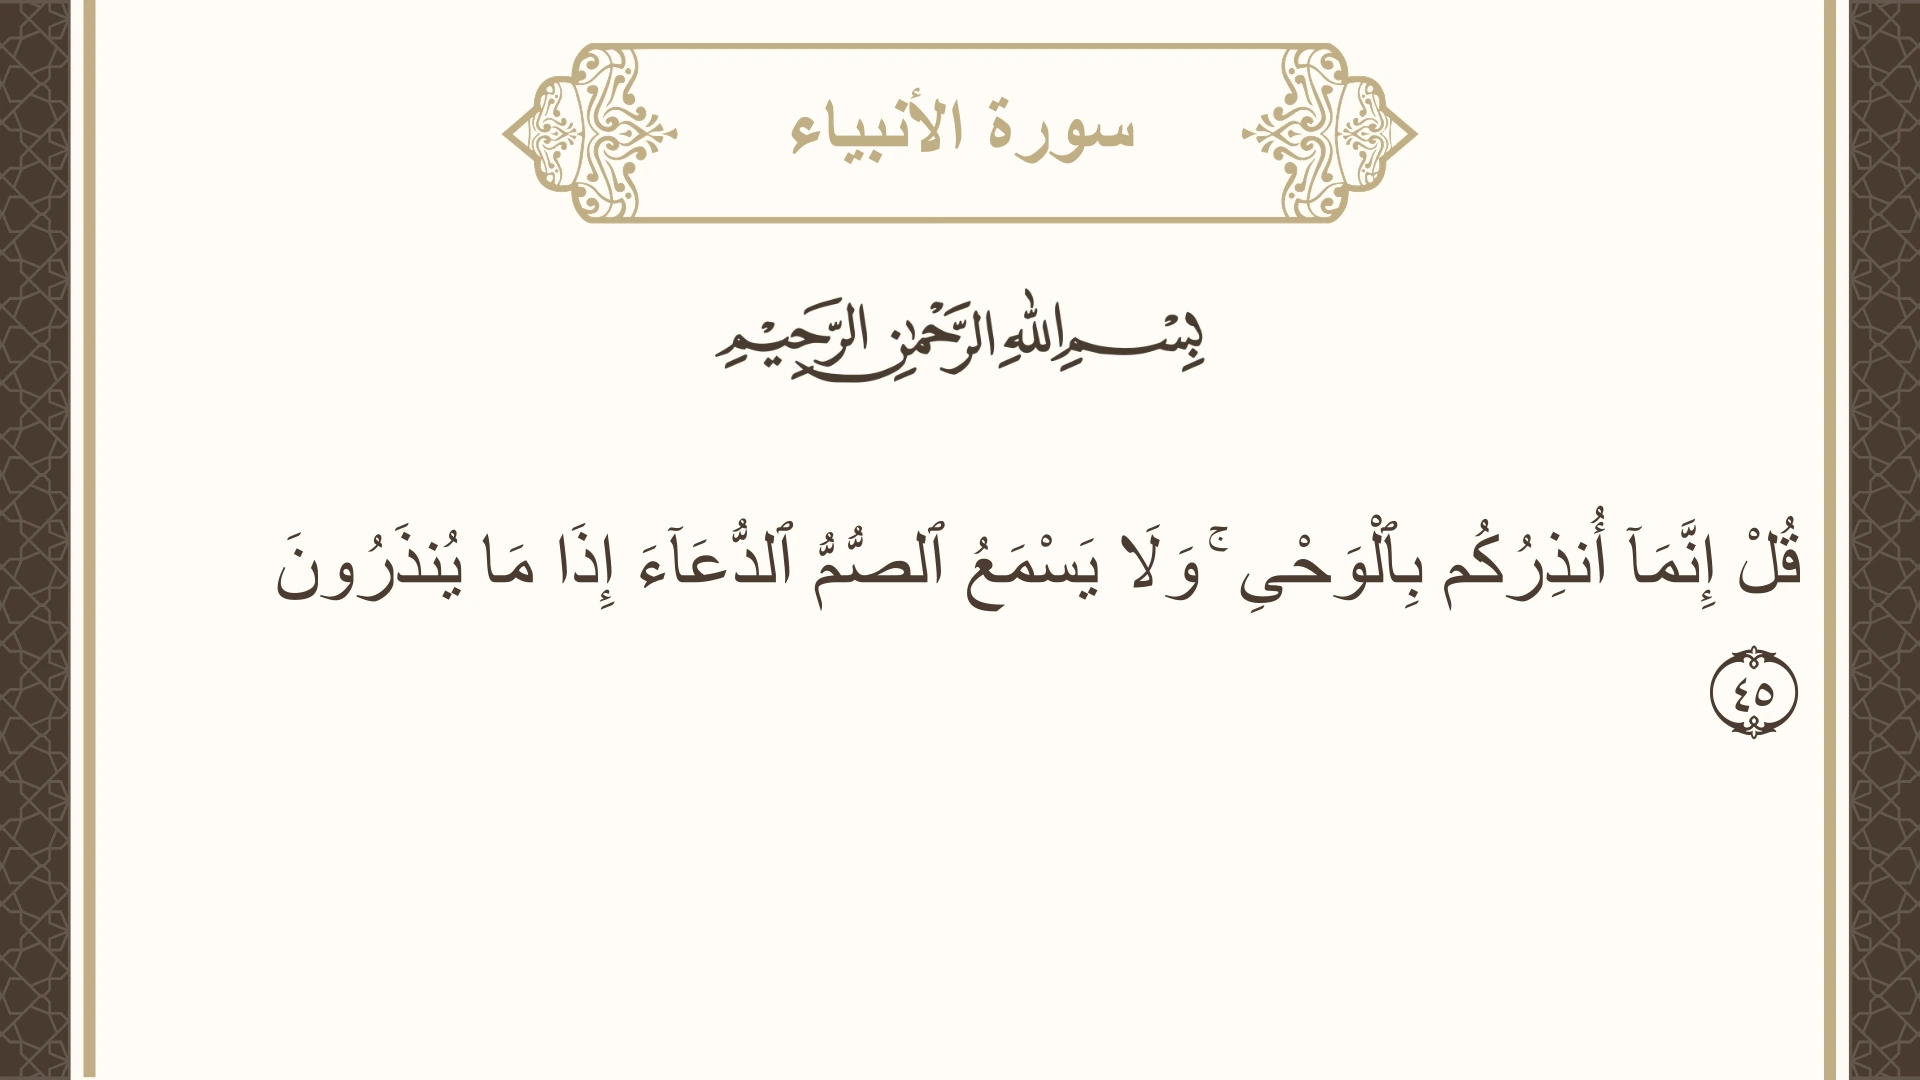 سورة الأنبياء
بِسْمِ اللهِ الرَّحْمٰنِ الرَّحِيْمِ
قُلْ إِنَّمَآ أُنذِرُكُم بِٱلْوَحْىِ ۚ وَلَا يَسْمَعُ ٱلصُّمُّ ٱلدُّعَآءَ إِذَا مَا يُنذَرُونَ
٤٥